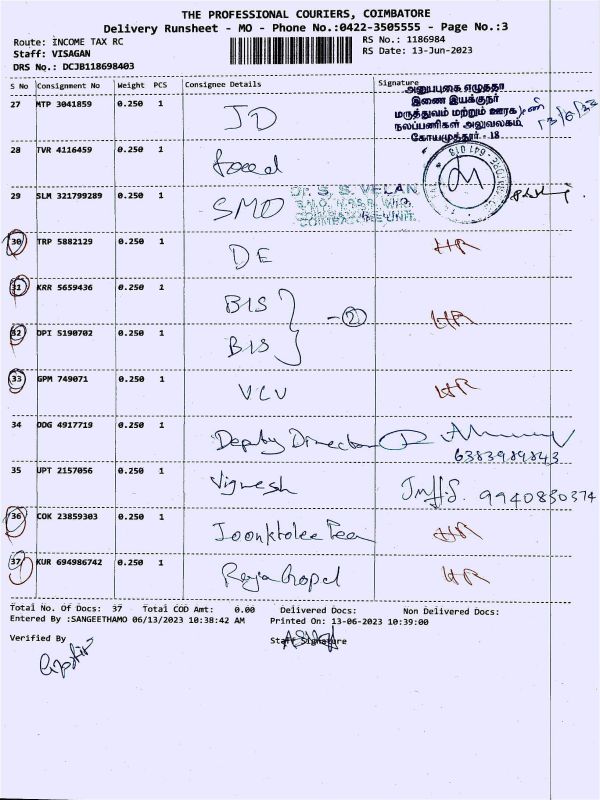 THE PROFESSIONAL COURIERS, COIMBATORE
Delivery Runsheet - MO - Phone No.:0422-3505555 - Page No.:3
Route: INCOME TAX RC
RS No.: 1186984
Staff: VISAGAN
RS Date: 13-Jun-2023
DRS No.: DCJB118698403
S No Consignment No Weight PCS Consignee Details Signature
அனுப்புகை எழுத்தர்
இணை இயக்குநர்
மருத்துவம் மற்றும் ஊரக
நலப்பணிகள் அலுவலகம்,
கோயமுத்தூர் - 18.
27 MTP 3041859 0.250 1 JD
28 TVR 4116459 0.250 1
29 SLM 321799289 0.250 1 SMO
Dr. S. S. VELAN
30 TRP 5882129 0.250 1 DE HR
31 KRR 5659436 0.250 1 BIS
- 2 HR
32 DPI 5190702 0.250 1 BIS
33 GPM 749071 0.250 1 VLV HR
34 DDG 4917719 0.250 1 Deputy Director
6383989843
35 UPT 2157056 0.250 1 Vignesh 9940830374
36 COK 23859303 0.250 1 Joonktolee Tea HR
37 KUR 694986742 0.250 1 RajaGopal HR
Total No. Of Docs: 37 Total COD Amt: 0.00 Delivered Docs: Non Delivered Docs:
Entered By :SANGEETHAMO 06/13/2023 10:38:42 AM Printed On: 13-06-2023 10:39:00
Verified By Staff Signature